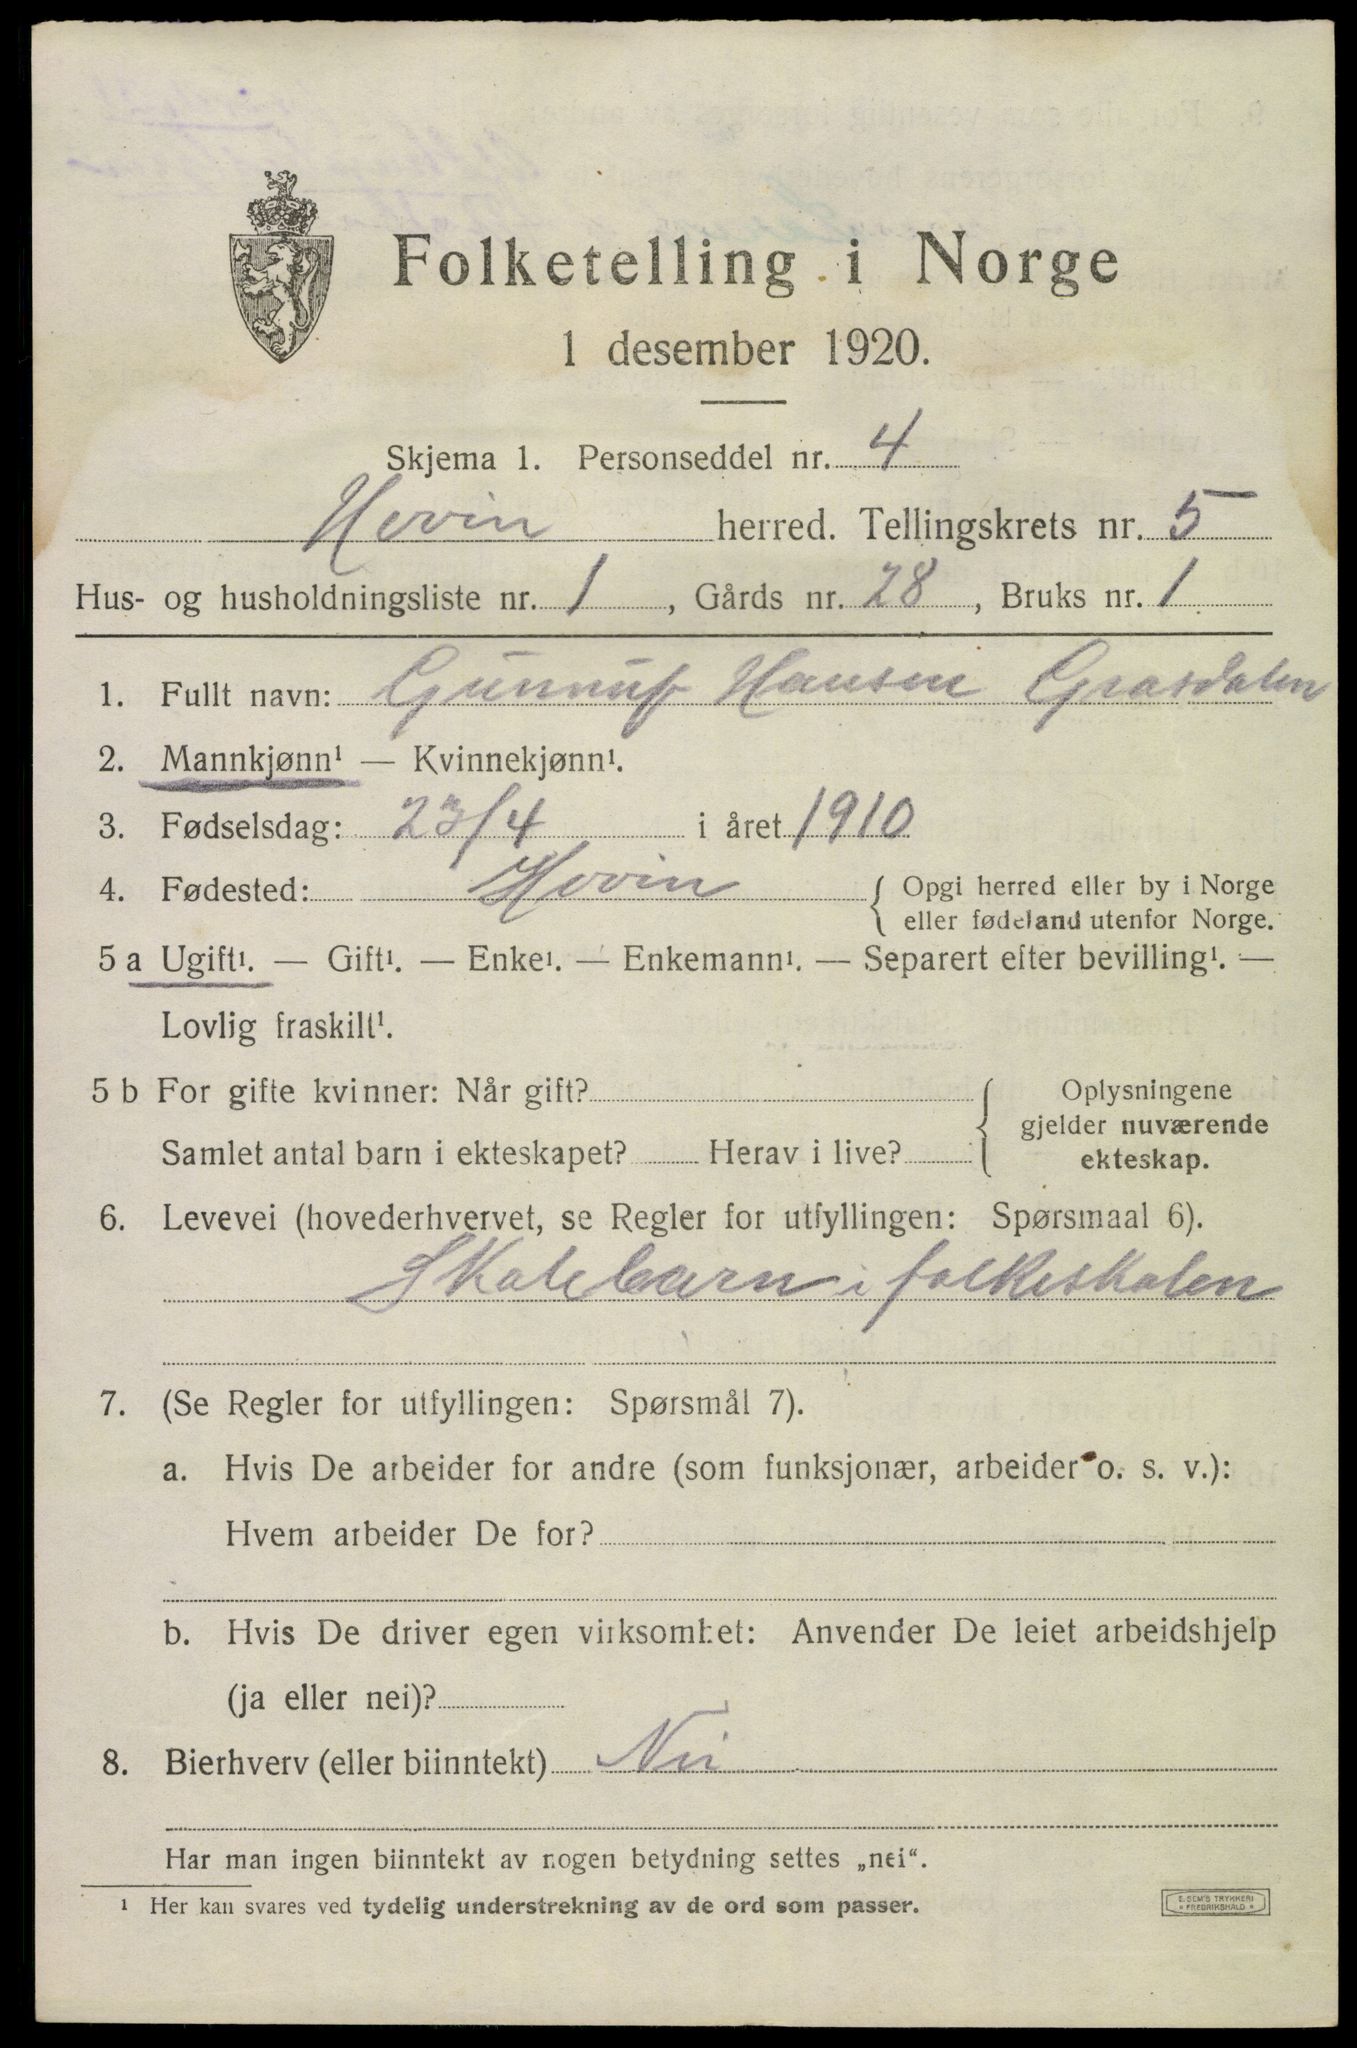 Folketelling i Norge
1 desember 1920.
Skjema 1. Personseddel nr. 4
Hovin herred. Tellingskrets nr. 5
Hus- og husholdningsliste nr. 1, Gårds nr. 28, Bruks nr. 1
1. Fullt navn: Gunnulf Hansen Grasdalen
2. Mannkjønn¹ — Kvinnekjønn¹.
3. Fødselsdag: 23/4 i året 1910
4. Fødested: Hovin { Opgi herred eller by i Norge
eller fødeland utenfor Norge.
5 a Ugift¹. — Gift¹. — Enke¹. — Enkemann¹. — Separert efter bevilling¹. —
Lovlig fraskilt¹.
5 b For gifte kvinner: Når gift?
Samlet antal barn i ekteskapet? Herav i live?
{ Oplysningene
gjelder nuværende
ekteskap.
6. Levevei (hovederhvervet, se Regler for utfyllingen: Spørsmaal 6).
Skolebarn i folkeskolen
7. (Se Regler for utfyllingen: Spørsmål 7).
a. Hvis De arbeider for andre (som funksjonær, arbeider o. s. v.):
Hvem arbeider De for?
b. Hvis De driver egen virksomhet: Anvender De leiet arbeidshjelp
(ja eller nei)?
8. Bierhverv (eller biinntekt) Nei
Har man ingen biinntekt av nogen betydning settes „nei“.
¹ Her kan svares ved tydelig understrekning av de ord som passer.
E. SEM'S TRYKKERI
* FREDRIKSHALD *